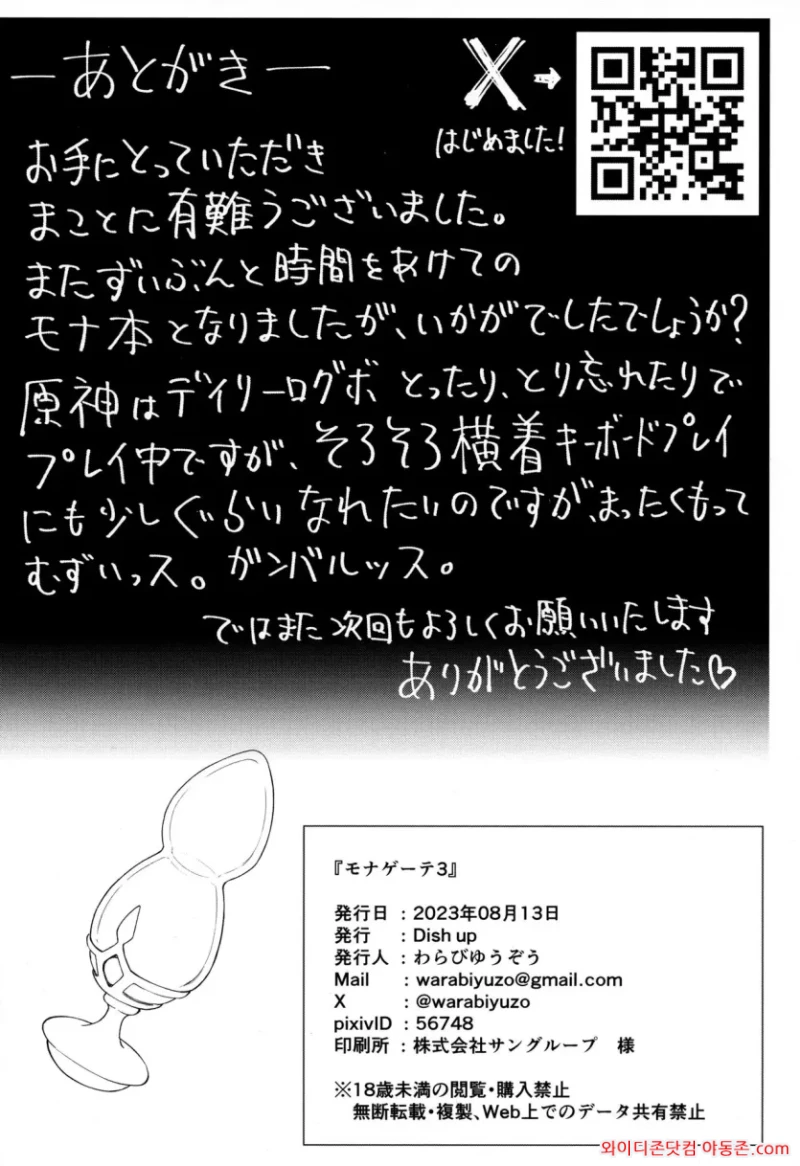 ―あとがき―
X→
はじめました!
お手にとっていただき
まことに有難うございました。
またずいぶんと時間をあけての
モナ本となりましたが、いかがでしたでしょうか?
原神はデイリーログボ とったり、とり忘れたりで
プレイ中ですが、そろそろ横着キーボードプレイ
にも少しぐらいなれたいのですが、まったくもって
むずいっス。ガンバルッス。
ではまた次回もよろしくお願いいたします
ありがとうございました♡
『モナゲーテ3』
発行日 : 2023年08月13日
発行 : Dish up
発行人 : わらびゆうぞう
Mail : warabiyuzo@gmail.com
X : @warabiyuzo
pixivID : 56748
印刷所 : 株式会社サングループ 様
※18歳未満の閲覧・購入禁止
無断転載・複製、Web上でのデータ共有禁止
와이디존닷컴·야동존.com